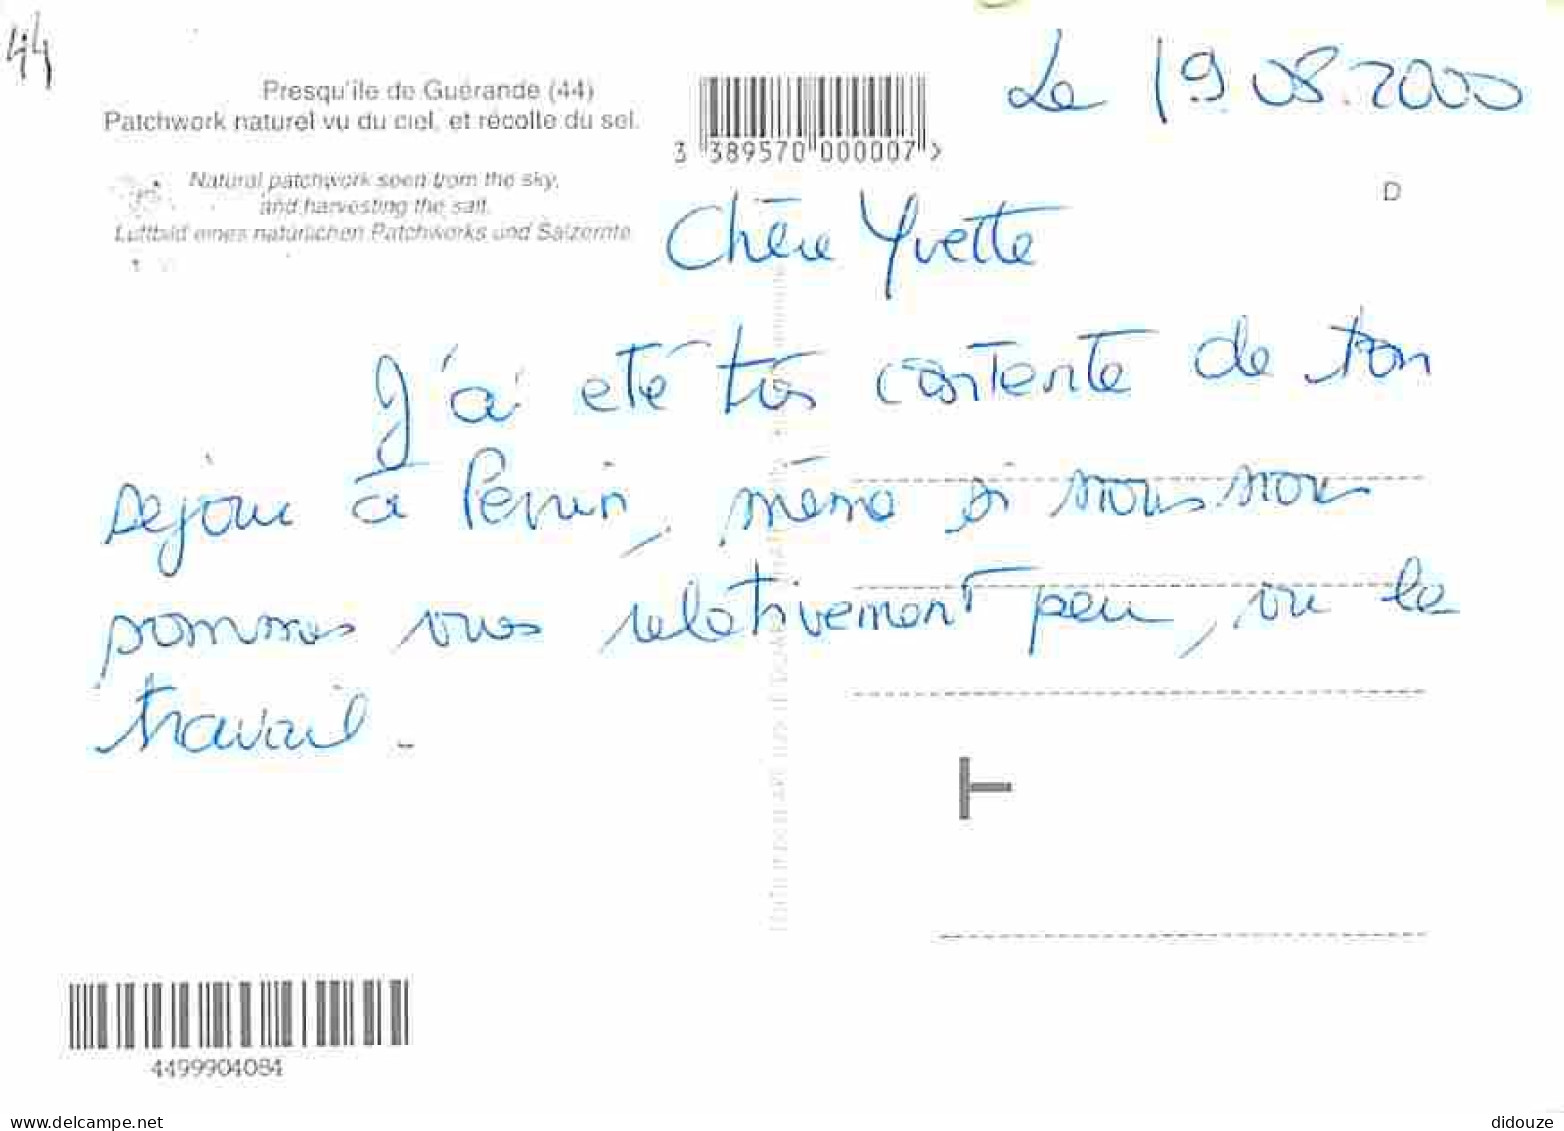 44
Le 19.08.2000
Presqu'ile de Guérande (44)
Patchwork naturel vu du ciel, et récolte du sel.
Natural patchwork seen from the sky,
and harvesting the salt.
Luftbild eines natürlichen Patchworks und Salzernte
3 389570 000007 >
D
Chère Yvette
J'ai eté très contente de ton
sejour à, même si nous nous
sommes vues relativement peu, vu le
travail.
4499904084
www.delcampe.net
didouze